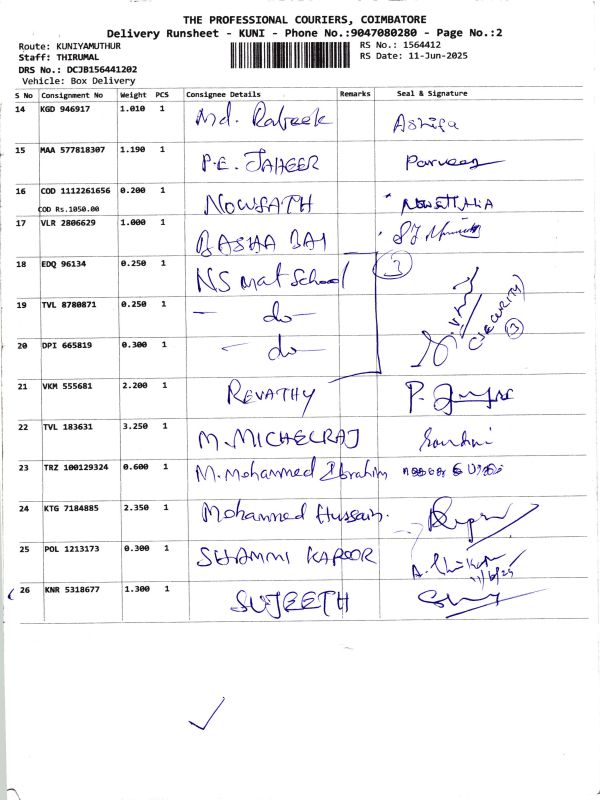 THE PROFESSIONAL COURIERS, COIMBATORE
Delivery Runsheet - KUNI - Phone No.:9047080280 - Page No.:2
Route: KUNIYAMUTHUR
Staff: THIRUMAL
DRS No.: DCJB156441202
Vehicle: Box Delivery
RS No.: 1564412
RS Date: 11-Jun-2025
S No Consignment No Weight PCS Consignee Details Remarks Seal & Signature
14 KGD 946917 1.010 1 Md. Rabeek Ashifa
15 MAA 577818307 1.190 1 P.E. JAHEER Parveen
16 COD 1112261656 0.200 1 NOWSATH
COD Rs.1050.00
17 VLR 2806629 1.000 1 BASHA BAI
18 EDQ 96134 0.250 1 NS mat School 3
19 TVL 8780871 0.250 1 — do —
20 DPI 665819 0.300 1 — do — (SECURITY) 3
21 VKM 555681 2.200 1 REVATHY P.
22 TVL 183631 3.250 1 M. MICHELRAJ
23 TRZ 100129324 0.600 1 M. Mohammed Ibrahim
24 KTG 7184885 2.350 1 Mohammed Hussain.
25 POL 1213173 0.300 1 SHAMMI KAPOOR A.
11/6/25
26 KNR 5318677 1.300 1 SUJEETH